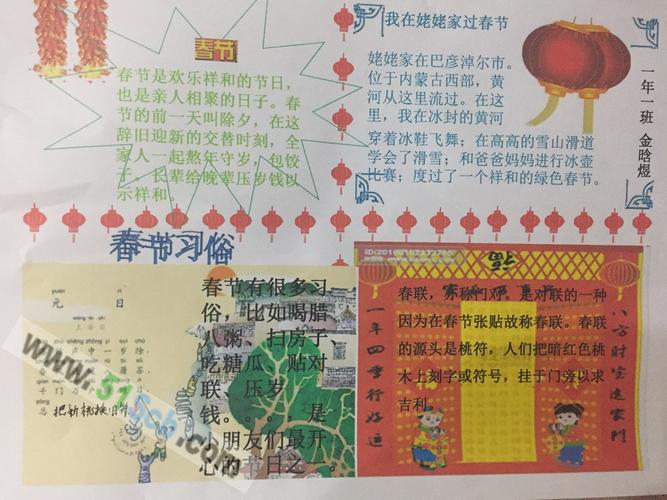 春节
春节是欢乐祥和的节日，
也是亲人相聚的日子。春
节的前一天叫除夕，在这
辞旧迎新的交替时刻，全
家人一起熬年守岁，包饺
子。长辈给晚辈压岁钱以
示祥和。
我在姥姥家过春节
姥姥家在巴彦淖尔市。
位于内蒙古西部，黄
河从这里流过。在这
里，我在冰封的黄河
穿着冰鞋飞舞；在高高的雪山滑道
学会了滑雪；和爸爸妈妈进行冰壶
比赛；度过了一个祥和的绿色春节。
一年一班 金晗煜
春节习俗
yuán rì
元 日
春节有很多习
俗，比如喝腊
八粥、扫房子、
吃糖瓜、贴对
联、压岁
钱。。。。是
小朋友们最开
心的节日之一。
福
春联，亦称门对。是对联的一种
因为在春节张贴故称春联。春联
的源头是桃符，人们把暗红色桃
木上刻字或符号，挂于门旁以求
吉利
一年四季行好运
八方财宝进家门